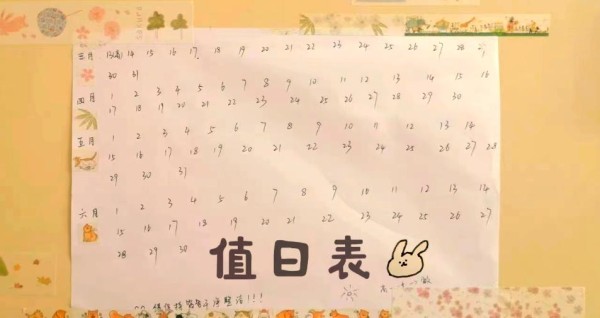 三月 13(周) 14 15 16 17 18 19 20 21 22 23 24 25 26 27 28 29
30 31
四月 1 2 3 4 5 6 7 8 9 10 11 12 13 14 15 16
17 18 19 20 21 22 23 24 25 26 27 28 29 30
五月 1 2 3 4 5 6 7 8 9 10 11 12 13 14
15 16 17 18 19 20 21 22 23 24 25 26 27 28
29 30 31
六月 1 2 3 4 5 6 7 8 9 10 11 12 13 14
15 16 17 18 19 20 21 22 23 24 25 26 27
28 29 30
值日表